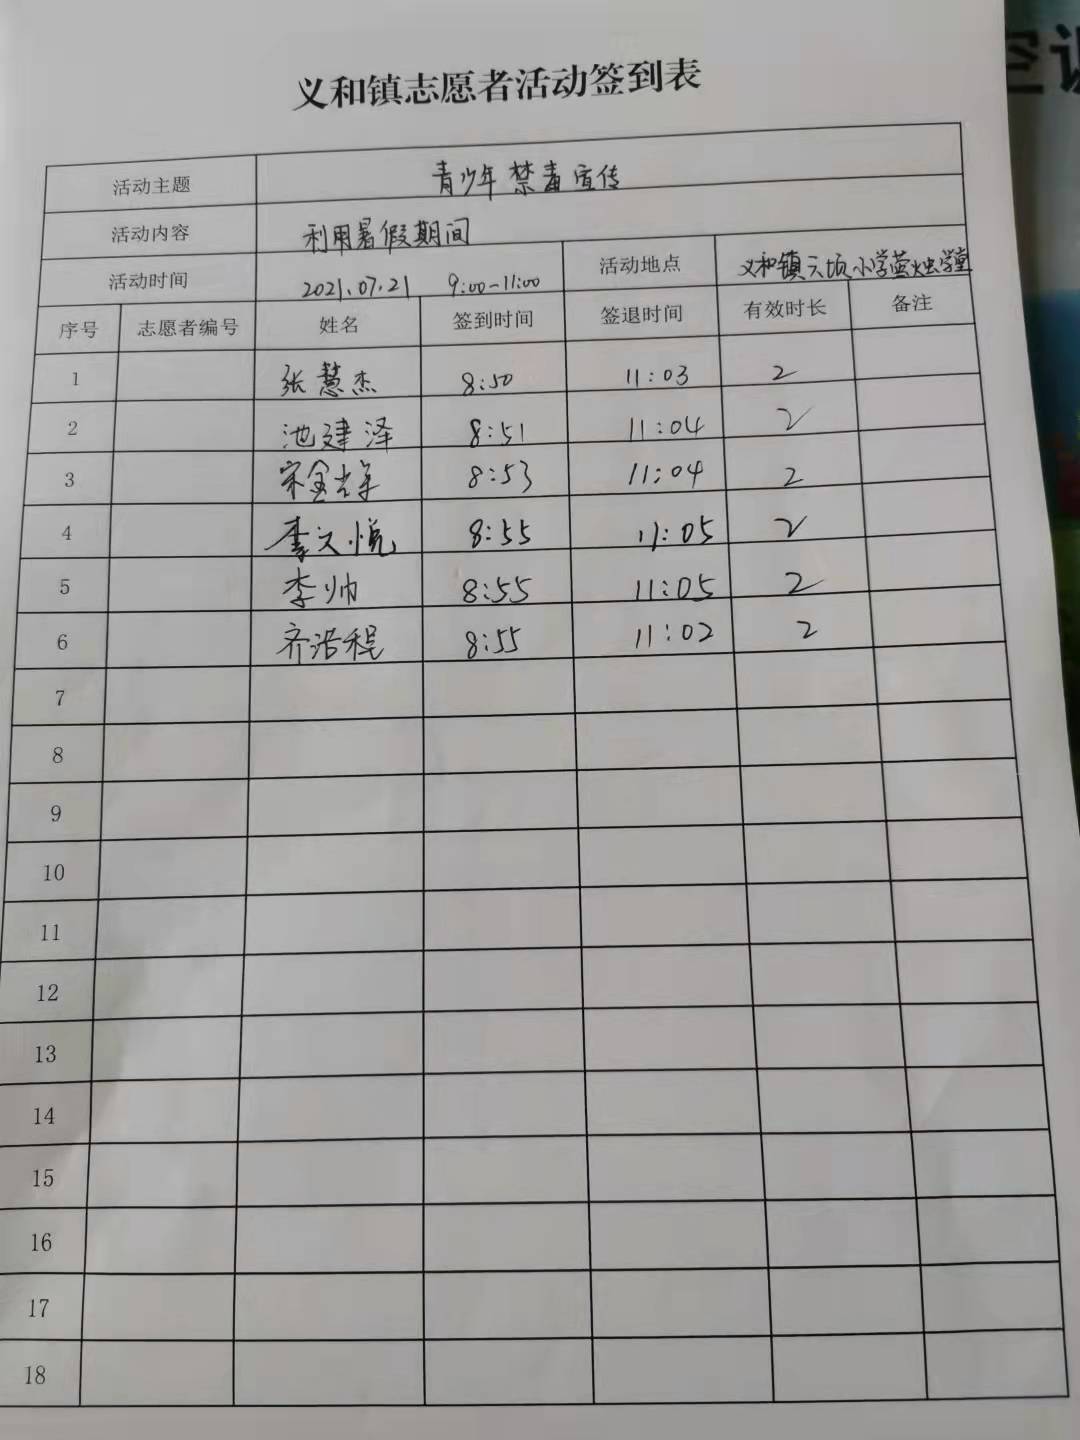 义和镇志愿者活动签到表
活动主题 青少年禁毒宣传
活动内容 利用暑假期间
活动时间 2021.07.21 9:00-11:00 活动地点 义和镇六顷小学萤烛学堂
序号 志愿者编号 姓名 签到时间 签退时间 有效时长 备注
1 张慧杰 8:50 11:03 2
2 池建泽 8:51 11:04 2
3 宋金 8:53 11:04 2
4 李文悦 8:55 11:05 2
5 李帅 8:55 11:05 2
6 齐浩程 8:55 11:02 2
7
8
9
10
11
12
13
14
15
16
17
18